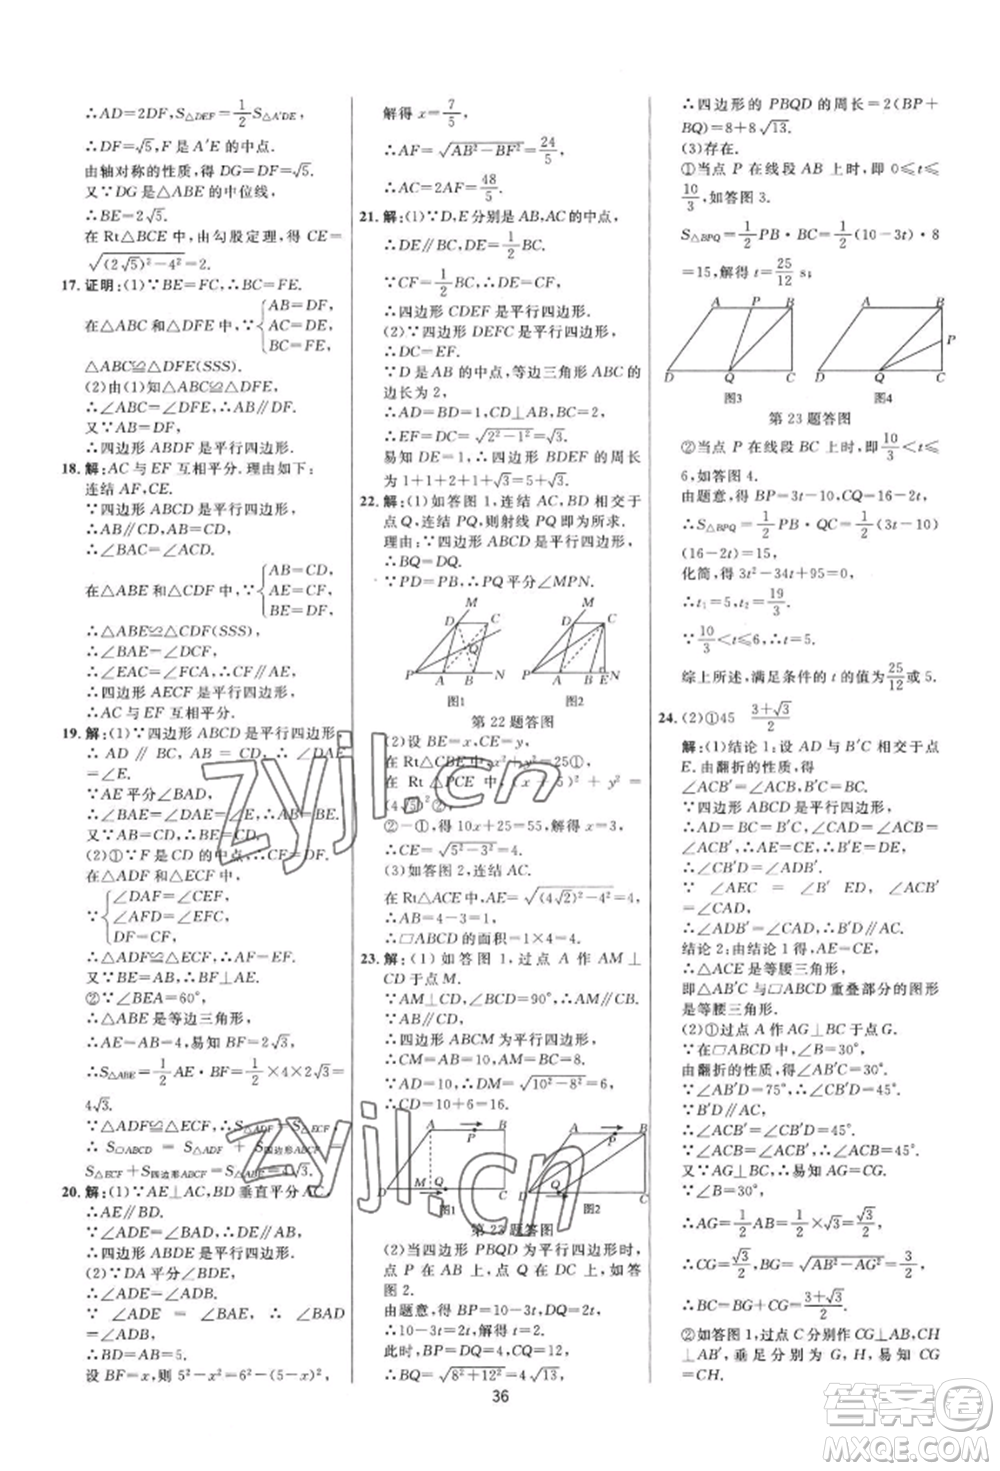 ∴AD=2DF,S△DEF=1/2S△A'DE,
∴DF=√5,F是A'E的中点.
由轴对称的性质,得DG=DF=√5.
又∵DG是△ABE的中位线,
∴BE=2√5.
在Rt△BCE中,由勾股定理,得CE=
√((2√5)²-4²)=2.
17.证明:(1)∵BE=FC,∴BC=FE.
在△ABC和△DFE中,∵{AB=DF,
AC=DE,
BC=FE,
△ABC≌△DFE(SSS).
(2)由(1)知△ABC≌△DFE,
∴∠ABC=∠DFE,∴AB∥DF.
又∵AB=DF,
∴四边形ABDF是平行四边形.
18.解:AC与EF互相平分.理由如下:
连结AF,CE.
∵四边形ABCD是平行四边形,
∴AB∥CD,
∴∠BAC=∠ACD.
在△ABE和△CDF中,∵{AB=CD,
AE=CF,
BE=DF,
∴△ABE≌△CDF(SSS),
∴∠BAE=∠DCF,
∴∠EAC=∠FCA,∴AE∥CF,
∴四边形AECF是平行四边形,
∴AC与EF互相平分.
19.解:(1)∵四边形ABCD是平行四边形,
∴AD∥BC,AB∥CD,AB=CD,
∴∠DAE=∠E.
∵AE平分∠BAD,
∴∠BAE=∠DAE=∠E,∴AB=BE.
又∵AB=CD,∴BE=CD.
(2)①∵F是CD的中点,∴DF=CF.
在△ADF和△ECF中,
∵{∠DAF=∠CEF,
∠AFD=∠EFC,
DF=CF,
∴△ADF≌△ECF,∴AF=EF.
又∵AB=BE,∴BF⊥AE.
②∵∠BEA=60°,
∴△ABE是等边三角形,
∴AE=AB=4,易知BF=2√3,
∴S△ABE=1/2AE·BF=1/2×4×2√3=
4√3.
∵△ADF≌△ECF,∴S△ADF=S△ECF,
∴S▱ABCD=S△ADF+S四边形ABCF=
S△ECF+S四边形ABCF=S△ABE=4√3.
20.解:(1)∵AE⊥AC,BD垂直平分AC,
∴AE∥BD.
∵∠ADE=∠BAD,∴DE∥AB,
∴四边形ABDE是平行四边形.
(2)∵DA平分∠BDE,
∴∠ADE=∠ADB.
∵∠ADE=∠BAE,∴∠BAE=∠ADB,
∴AB=BD=5.
设BF=x,则5²-x²=6²-(5-x)²,
解得x=7/5,
∴AF=√(AB²-BF²)=24/5,
∴AC=2AF=48/5.
21.解:(1)∵D,E分别是AB,AC的中点,
∴DE∥BC,DE=1/2BC.
∵CF=1/2BC,∴DE=CF,
∴四边形CDEF是平行四边形.
(2)∵四边形DEFC是平行四边形,
∴DC=EF.
∵D是AB的中点,等边三角形ABC的
边长为2,
∴AD=BD=1,CD⊥AB,BC=2,
∴EF=DC=√(2²-1²)=√3.
易知DE=1,∴四边形BDEF的周长为
1+1+2+1+√3=5+√3.
22.解:(1)如答图1,连结AC,BD相交于
点Q,连结PQ,则射线PQ即为所求.
理由:∵四边形ABCD是平行四边形,
∴BQ=DQ.
∵PD=PB,∴PQ平分∠MPN.
M D C Q P A B N
图1
M D C P A B E N
图2
第22题答图
(2)设BE=x,CE=y,
在Rt△CBE中,x²+y²=25①,
在Rt△PCE中,(x+5)²+y²=
(4√5)²②,
②-①,得10x+25=55,解得x=3,
∴CE=√(5²-3²)=4.
(3)如答图2,连结AC.
在Rt△ACE中,AE=√((4√2)²-4²)=4,
∴AB=4-3=1,
∴▱ABCD的面积=1×4=4.
23.解:(1)如答图1,过点A作AM⊥
CD于点M.
∵AM⊥CD,∠BCD=90°,∴AM∥BC,
∴四边形ABCM为平行四边形,
∴CM=AB=10,AM=BC=8.
∵AD=10,∴DM=√(10²-8²)=6,
∴CD=10+6=16.
P B D M Q C
图1
P B D Q C
图2
第23题答图
(2)当四边形PBQD为平行四边形时,
点P在AB上,点Q在DC上,如答
图2.
由题意,得BP=10-3t,DQ=2t,
∴10-3t=2t,解得t=2.
此时,BP=DQ=4,CQ=12,
∴BQ=√(8²+12²)=4√13,
∴四边形的PBQD的周长=2(BP+
BQ)=8+8√13.
(3)存在.
①当点P在线段AB上时,即0≤t≤
10/3时,如答图3.
S△BPQ=1/2PB·BC=1/2(10-3t)·8
=15,解得t=25/12 s;
A P B D Q C
图3
A B P D Q C
图4
第23题答图
②当点P在线段BC上时,即10/3<t≤
6,如答图4.
由题意,得BP=3t-10,CQ=16-2t,
∴S△BPQ=1/2PB·QC=1/2(3t-10)
(16-2t)=15,
化简,得3t²-34t+95=0,
∴t₁=5,t₂=19/3.
∵10/3<t≤6,∴t=5.
综上所述,满足条件的t的值为25/12或5.
24.(2)①45 (3+√3)/2
解:(1)结论1:设AD与B'C相交于点
E.由翻折的性质,得
∠ACB'=∠ACB,BC=B'C.
∵四边形ABCD是平行四边形,
∴AD=BC=B'C,∠DAC=∠ACB=
∠ACB',∴AE=CE,∴DE=B'E,
∴∠CB'D=∠ADB'.
∵∠AEC=∠B'ED,∠ACB'=
∠CAD,
∴∠ADB'=∠CAD,∴B'D∥AC.
结论2:由结论1得,AE=CE,
∴△ACE是等腰三角形,
即△AB'C与▱ABCD重叠部分的图形
是等腰三角形.
(2)①过点A作AG⊥BC于点G.
∵在▱ABCD中,∠B=30°,
由翻折的性质,得∠AB'C=30°.
∵∠AB'D=75°,∴∠CB'D=45°.
∵B'D∥AC,
∴∠ACB'=∠CB'D=45°.
∵∠ACB=∠ACB',∴∠ACB=45°.
∵AG⊥BC,∴AG=CG.
∵∠B=30°,
∴AG=1/2AB=1/2×√3=√3/2,
∴CG=√3/2,BG=√(AB²-AG²)=3/2,
∴BC=BG+CG=(3+√3)/2.
②如答图1,过点C分别作CG⊥AB,CH
⊥AB',垂足分别为G,H,则CG
=CH.
36
zyjl.cn
zyjl.cn
答案圈
MXQE.COM